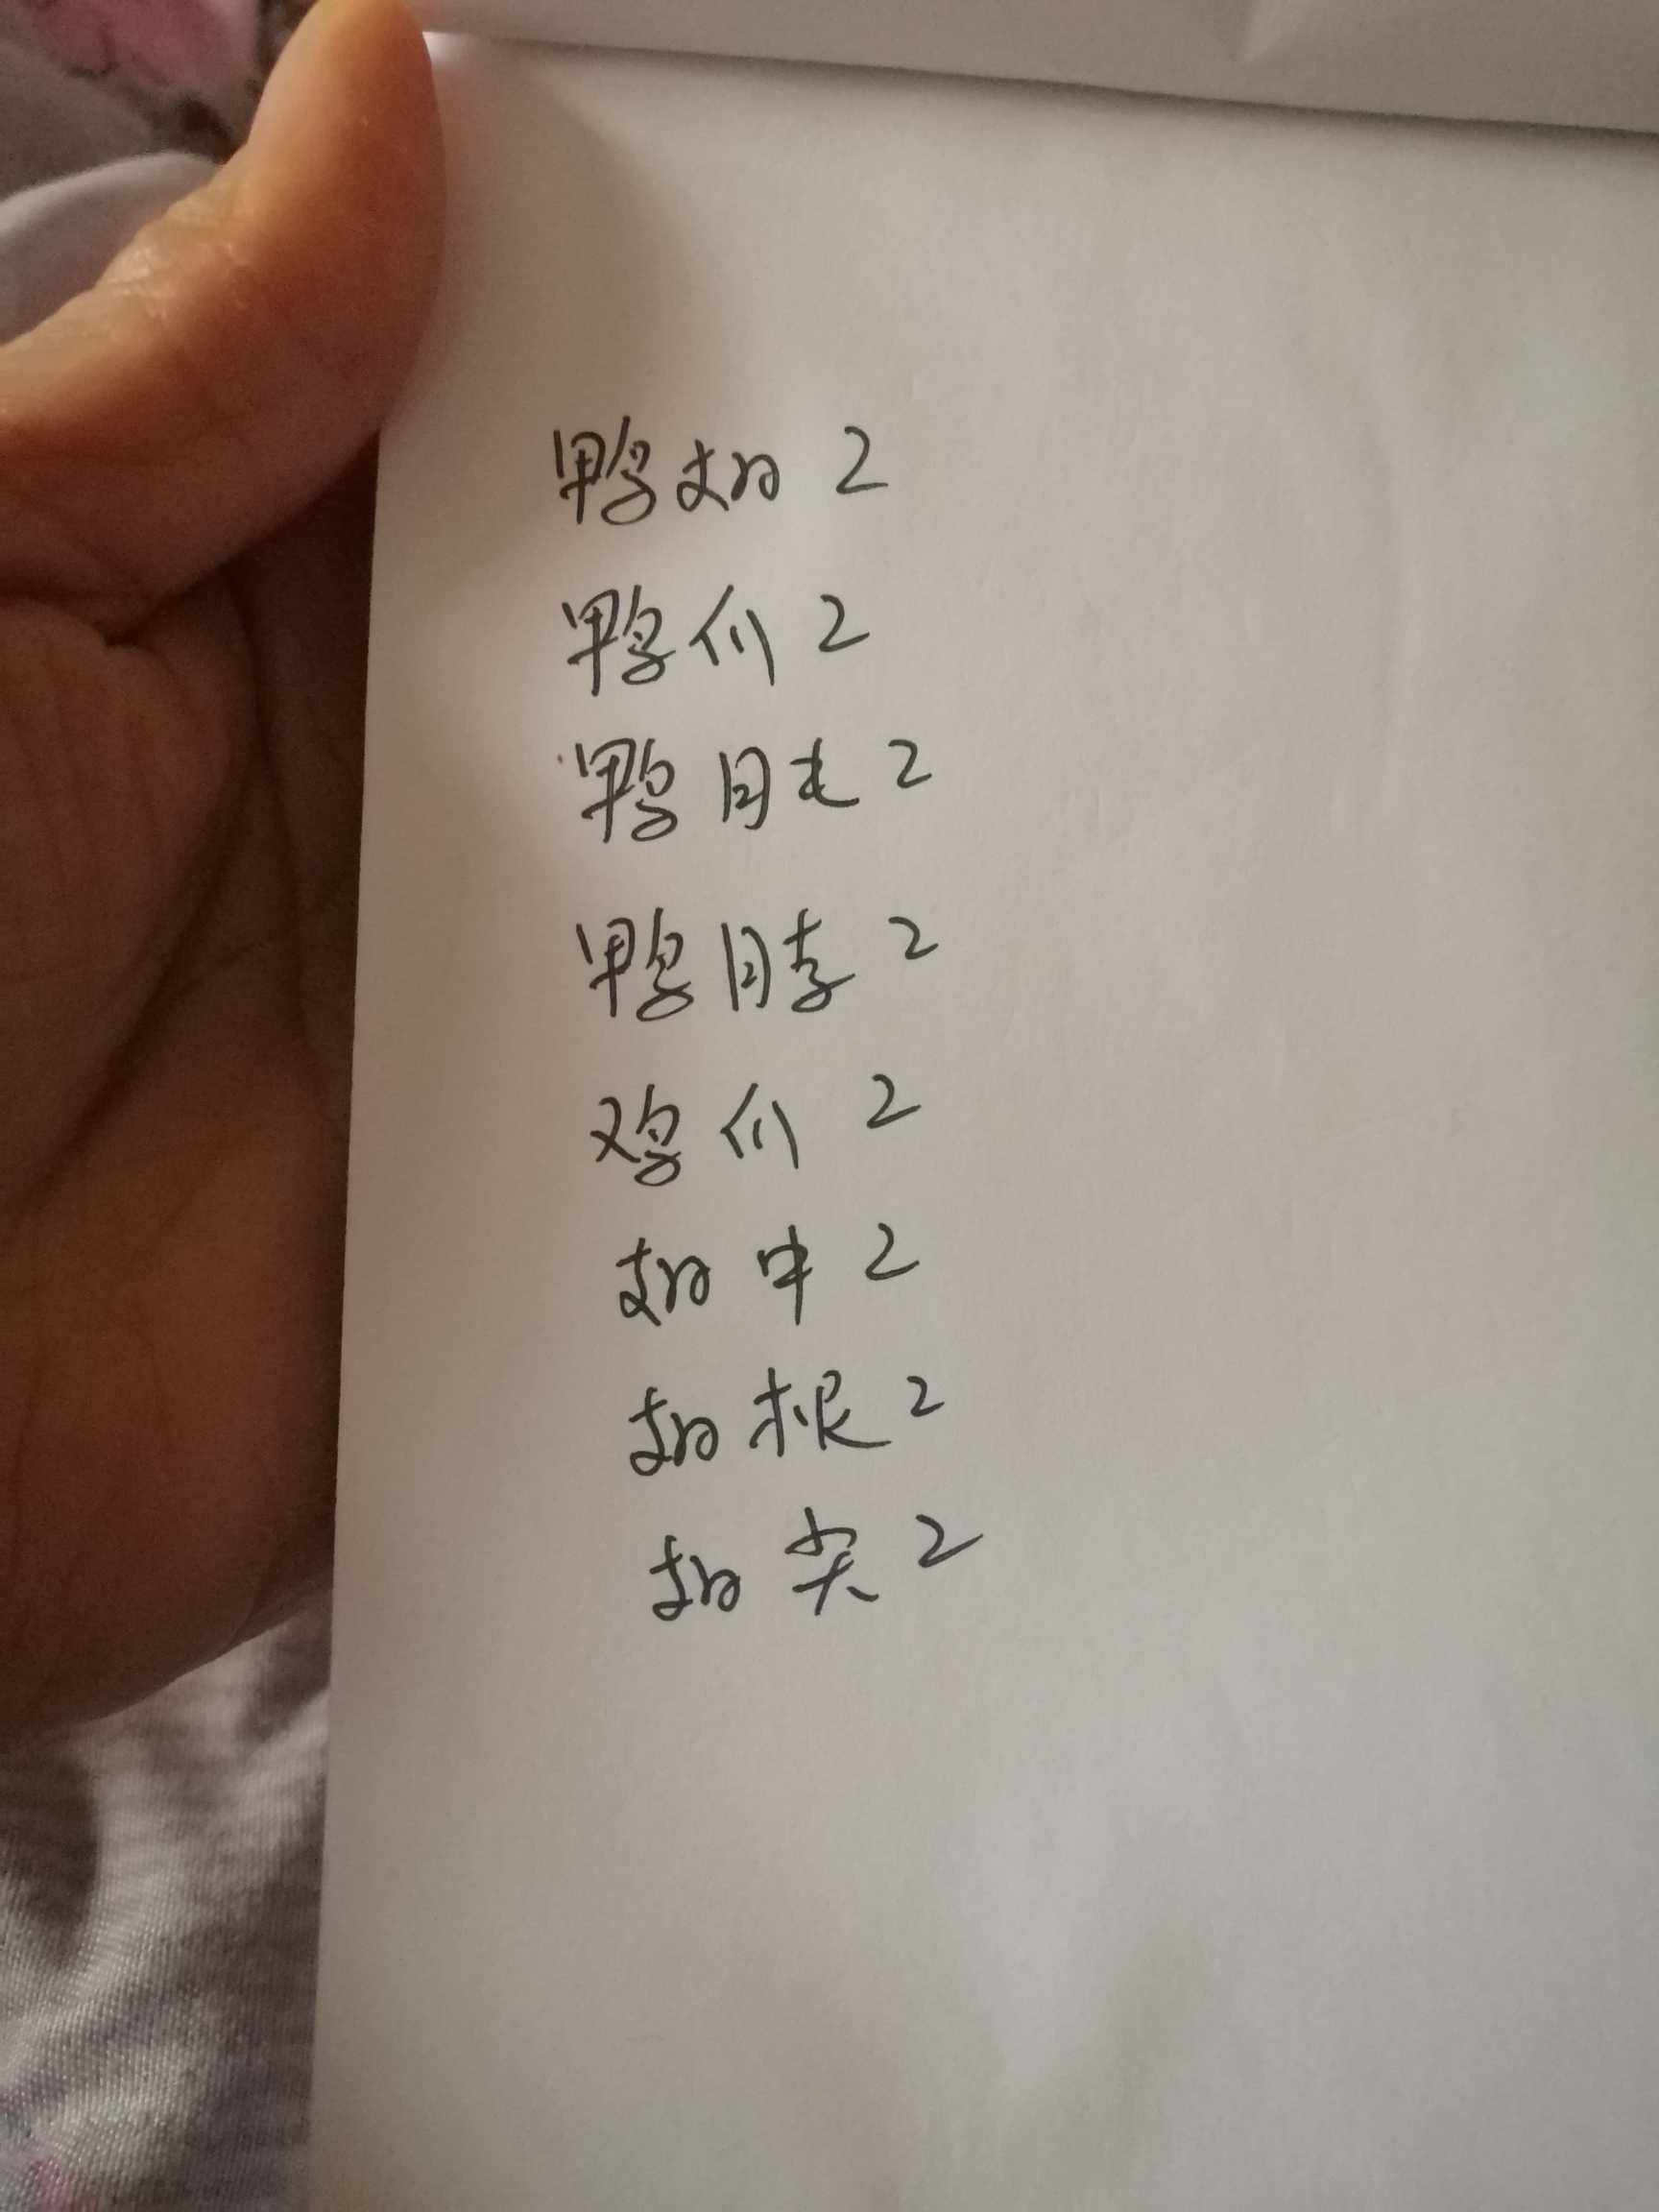 鸭翅 2
鸭爪 2
鸭 2
鸭脖 2
鸡爪 2
翅中 2
翅根 2
翅尖 2